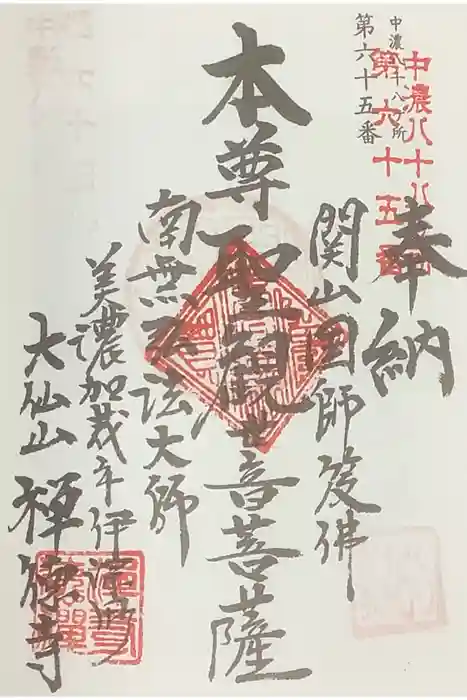 中濃八十八ヶ所
第六十五番
中濃八十八
第六十五番
奉納
関山国師笈佛
本尊聖観世音菩薩
南無弘法大師
美濃加茂市伊深町
大仙山 禅徳寺